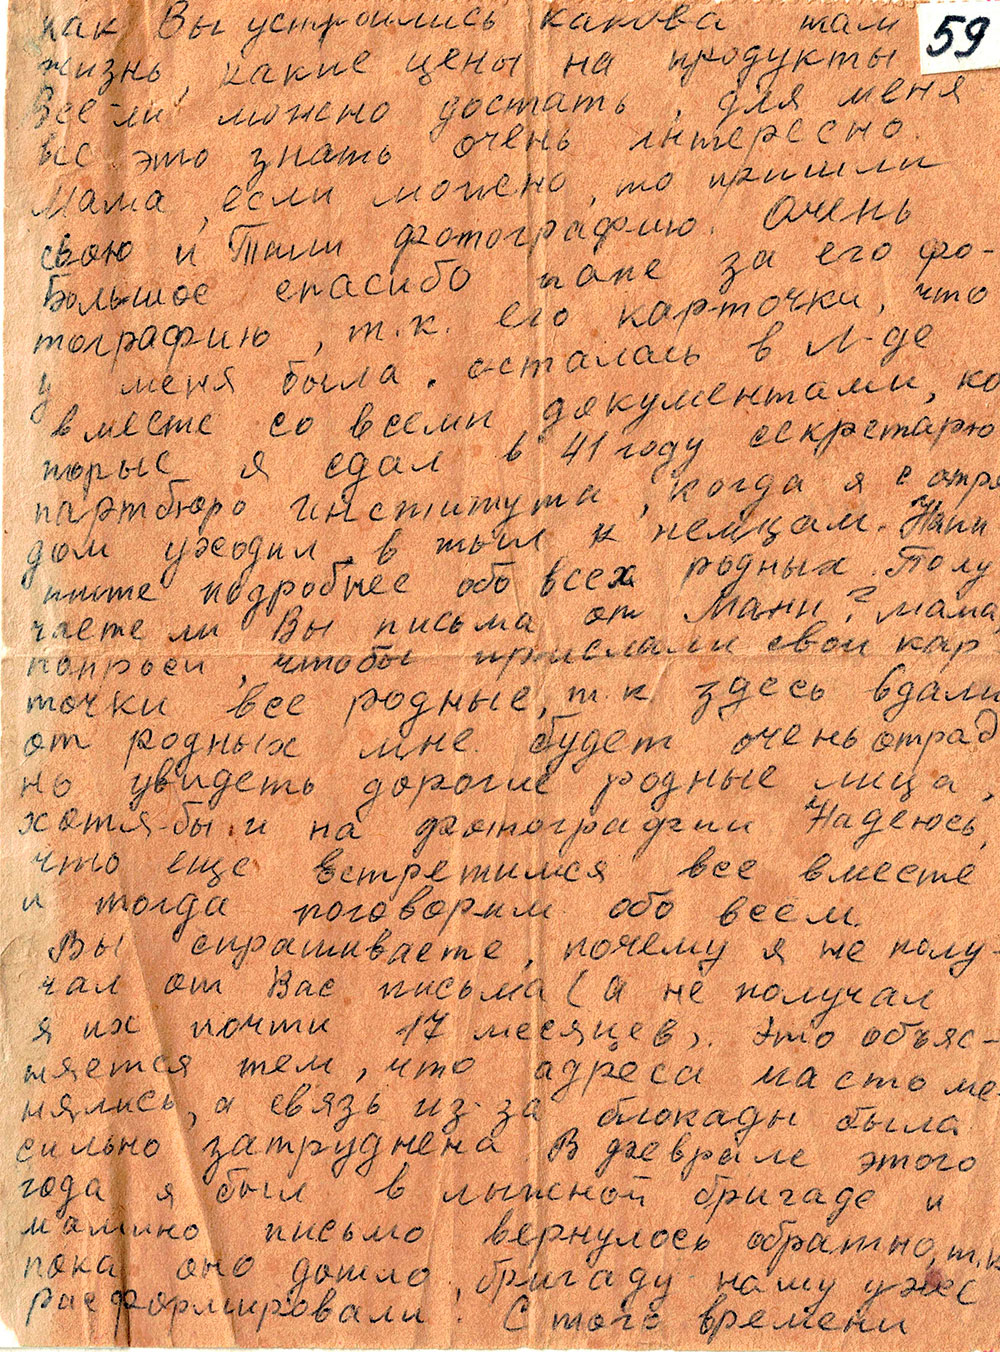 59
как Вы устроились какова там
жизнь, какие цены на продукты
Все-ли можно достать, для меня
все это знать очень интересно.
Мама, если можно, то пришли
свою и Тани фотографию. Очень
большое спасибо папе за его фо-
тографию, т.к. его карточки, что
у меня была. осталась в Л-де
вместе со всеми документами, ко
торые я сдал в 41 году секретарю
партбюро Института, когда я с отря
дом уходил в тыл к немцам. Напи
шите подробнее обо всех родных. Полу
чаете ли Вы письма от Мани? мама,
попроси, чтобы прислали свои кар
точки все родные, т.к. здесь вдали
от родных мне будет очень отрад
но увидеть дорогие родные лица,
хотя-бы и на фотографии Надеюсь,
что еще встретимся все вместе
и тогда поговорим обо всем.
Вы спрашиваете, почему я не полу-
чал от Вас письма (а не получал
я их почти 17 месяцев). Это объяс-
няется тем, что адреса часто ме-
нялись, а связь из-за блокады была
сильно затруднена. В феврале этого
года я был в лыжной бригаде и
мамино письмо вернулось обратно, т.к
пока оно дошло, бригаду нашу уже
расформировали. С того времени